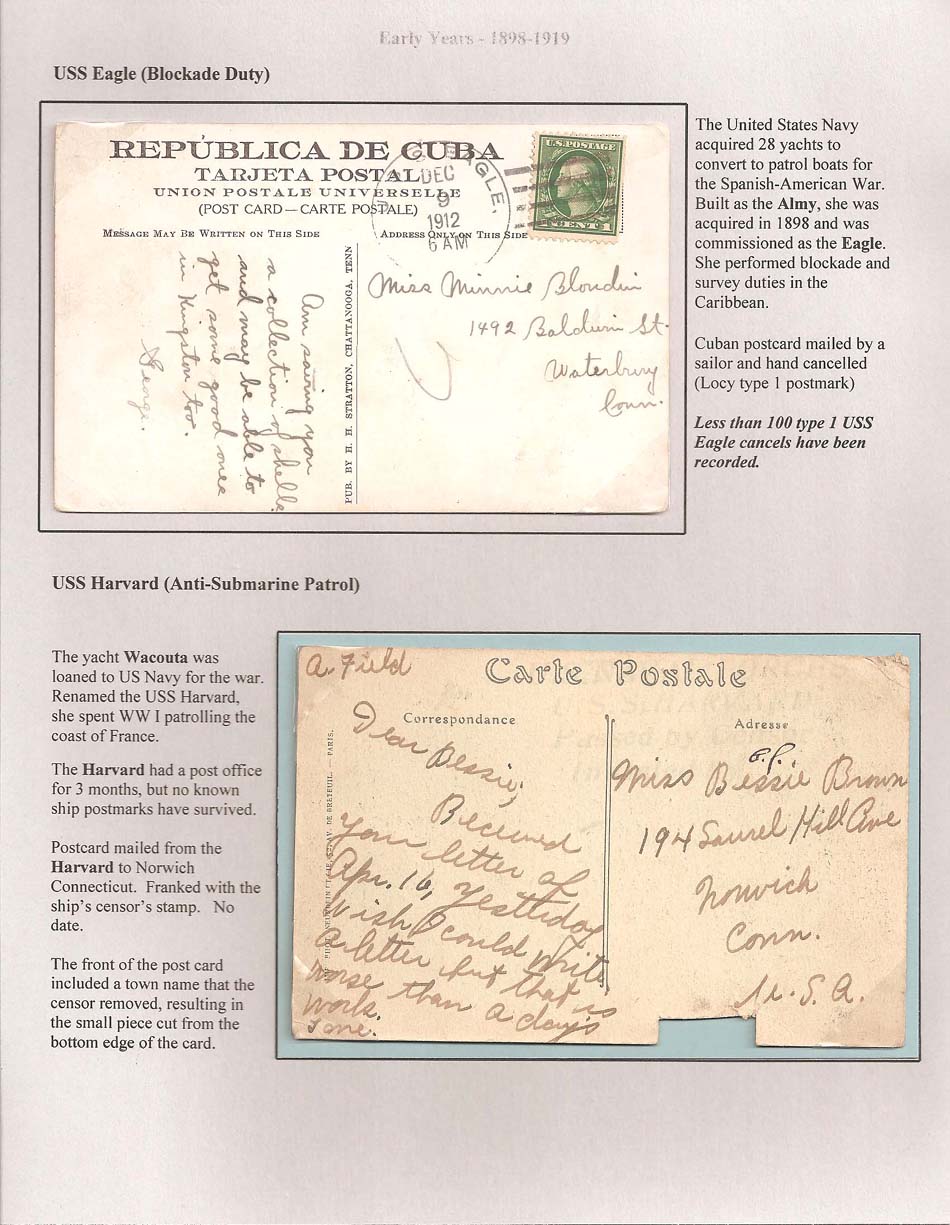 Early Years - 1898-1919
USS Eagle (Blockade Duty)
REPÚBLICA DE CUBA
TARJETA POSTAL
UNION POSTALE UNIVERSELLE
(POST CARD—CARTE POSTALE)
MESSAGE MAY BE WRITTEN ON THIS SIDE
ADDRESS ONLY ON THIS SIDE
EAGLE.
DEC
9
1912
6 AM
U.S. POSTAGE
Am saving you
a collection of shells
and may be able to
get some good ones
in Kingston too.
George.
PUB. BY H. H. STRATTON, CHATTANOOGA, TENN
Miss Minnie Blondin
1492 Baldwin St.
Waterbury
Conn.
The United States Navy
acquired 28 yachts to
convert to patrol boats for
the Spanish-American War.
Built as the Almy, she was
acquired in 1898 and was
commissioned as the Eagle.
She performed blockade and
survey duties in the
Caribbean.
Cuban postcard mailed by a
sailor and hand cancelled
(Locy type 1 postmark)
Less than 100 type 1 USS
Eagle cancels have been
recorded.
USS Harvard (Anti-Submarine Patrol)
The yacht Wacouta was
loaned to US Navy for the war.
Renamed the USS Harvard,
she spent WW I patrolling the
coast of France.
The Harvard had a post office
for 3 months, but no known
ship postmarks have survived.
Postcard mailed from the
Harvard to Norwich
Connecticut. Franked with the
ship's censor's stamp. No
date.
The front of the post card
included a town name that the
censor removed, resulting in
the small piece cut from the
bottom edge of the card.
A. Field
Carte Postale
Correspondance
Adresse
Dear Bessie;
Received
your letter of
Apr. 16, yesttiday
Wish I could write
a letter but that is
worse than a day's
work.
Passed by Censor
Miss Bessie Brown
194 Laurel Hill Ave
Norwich
Conn.
U. S. A.